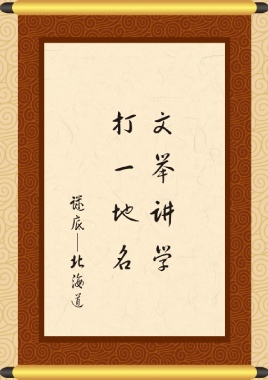 文举讲学
打一地名
谜底——北海道